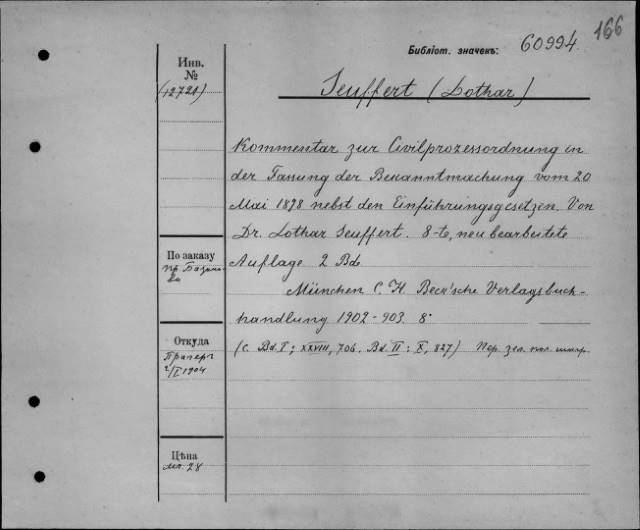 166
Библіот. значекъ: 60994
Инв.
№
(12721)
Seuffert (Lothar)
Kommentar zur Civilprozessordnung in
der Fassung der Bekanntmachung vom 20
Mai 1898 nebst den Einführungsgesetzen. Von
Dr. Lothar Seuffert. 8-te, neu bearbeitete
Auflage 2 Bde
München C. H. Beck'sche Verlagsbuch-
handlung 1902-903 8°
(c. Bd. I; XXVIII, 706. Bd. II: X, 827) Пер. зел. пол. шагр.
По заказу
пр.
Откуда
Прагеръ
2/I 1904
Цѣна
мк. 28